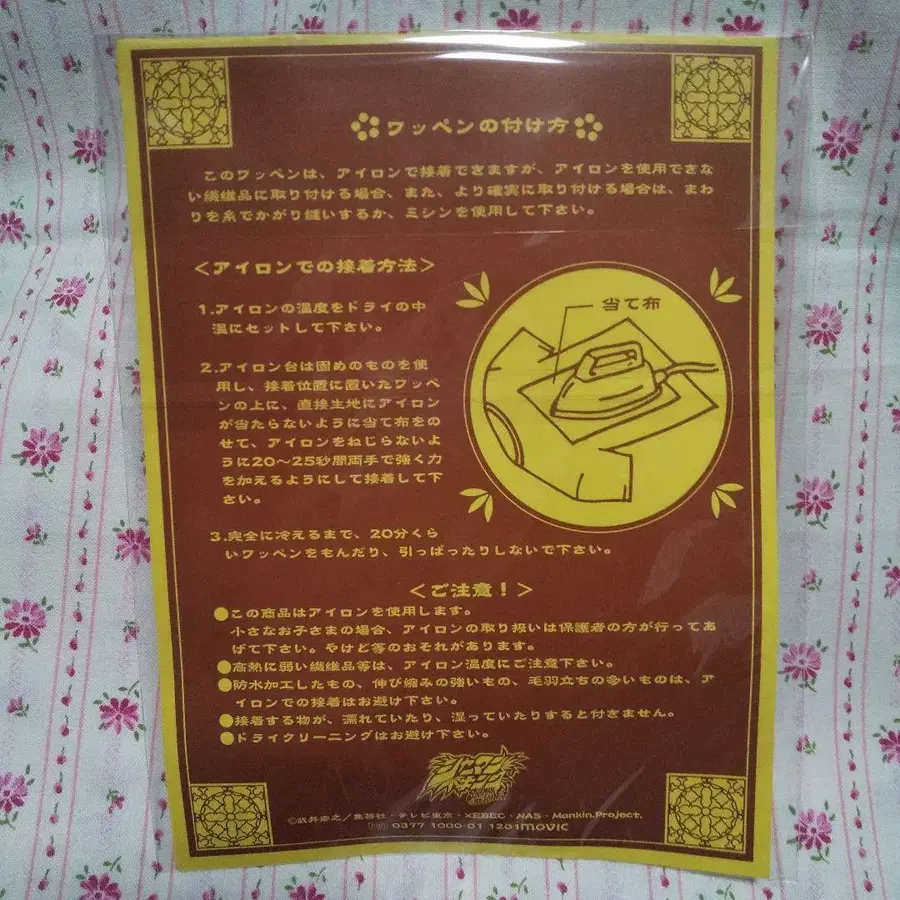 ワッペンの付け方
このワッペンは、アイロンで接着できますが、アイロンを使用できな
い繊維品に取り付ける場合、また、より確実に取り付ける場合は、まわ
りを糸でかがり縫いするか、ミシンを使用して下さい。
＜アイロンでの接着方法＞
1.アイロンの温度をドライの中
温にセットして下さい。
2.アイロン台は固めのものを使
用し、接着位置に置いたワッペ
ンの上に、直接生地にアイロン
が当たらないように当て布をの
せて、アイロンをねじらないよ
うに20〜25秒間両手で強く力
を加えるようにして接着して下
さい。
当て布
3.完全に冷えるまで、20分くら
いワッペンをもんだり、引っぱったりしないで下さい。
＜ご注意！＞
●この商品はアイロンを使用します。
小さなお子さまの場合、アイロンの取り扱いは保護者の方が行ってあ
げて下さい。やけど等のおそれがあります。
●高熱に弱い繊維品等は、アイロン温度にご注意下さい。
●防水加工したもの、伸び縮みの強いもの、毛羽立ちの多いものは、ア
イロンでの接着はお避け下さい。
●接着する物が、濡れていたり、湿っていたりすると付きません。
●ドライクリーニングはお避け下さい。
シャーマンキング
©武井宏之／集英社・テレビ東京・XEBEC・NAS・Mankin.Project.
0377 1000-01 1201 movic